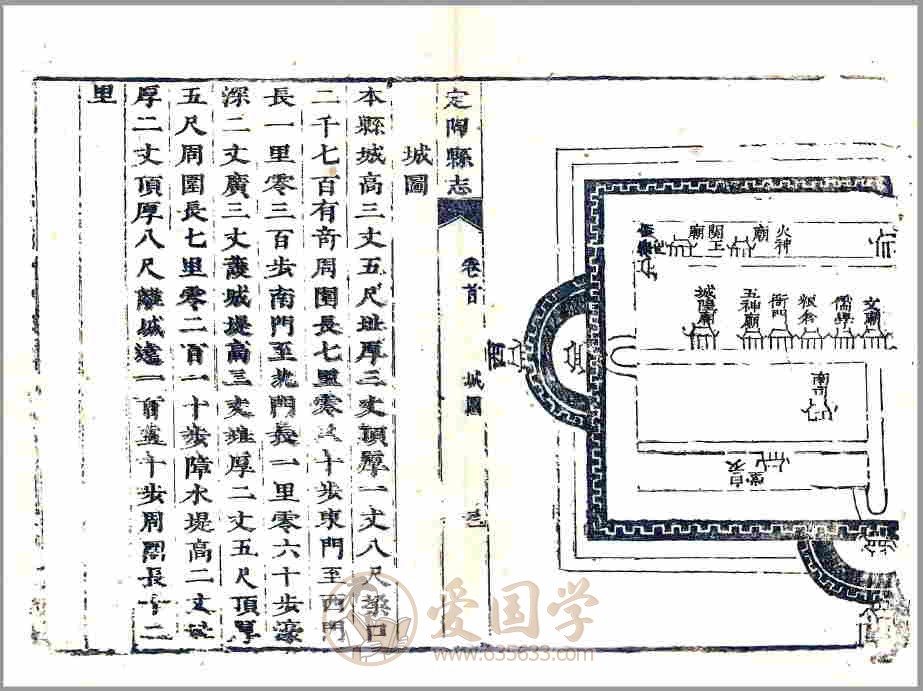 火神廟
関王廟
文廟
儒學
衙門
五神廟
城隍廟
南市
西
定陶縣志
卷首
城圖
城圖
本縣城高三丈五尺址厚三丈頂厚一丈八尺口
二千七百有奇周圍長七里零十步東門至西門
長一里零三百步南門至北門長一里零六十步濠
深二丈廣三丈護城堤高三丈厚二丈五尺頂厚
五尺周圍長七里零二百一十步障水堤高二丈址
厚二丈頂厚八尺離城遠一百五十步周圍長十二
里
爱国学
www.635633.com